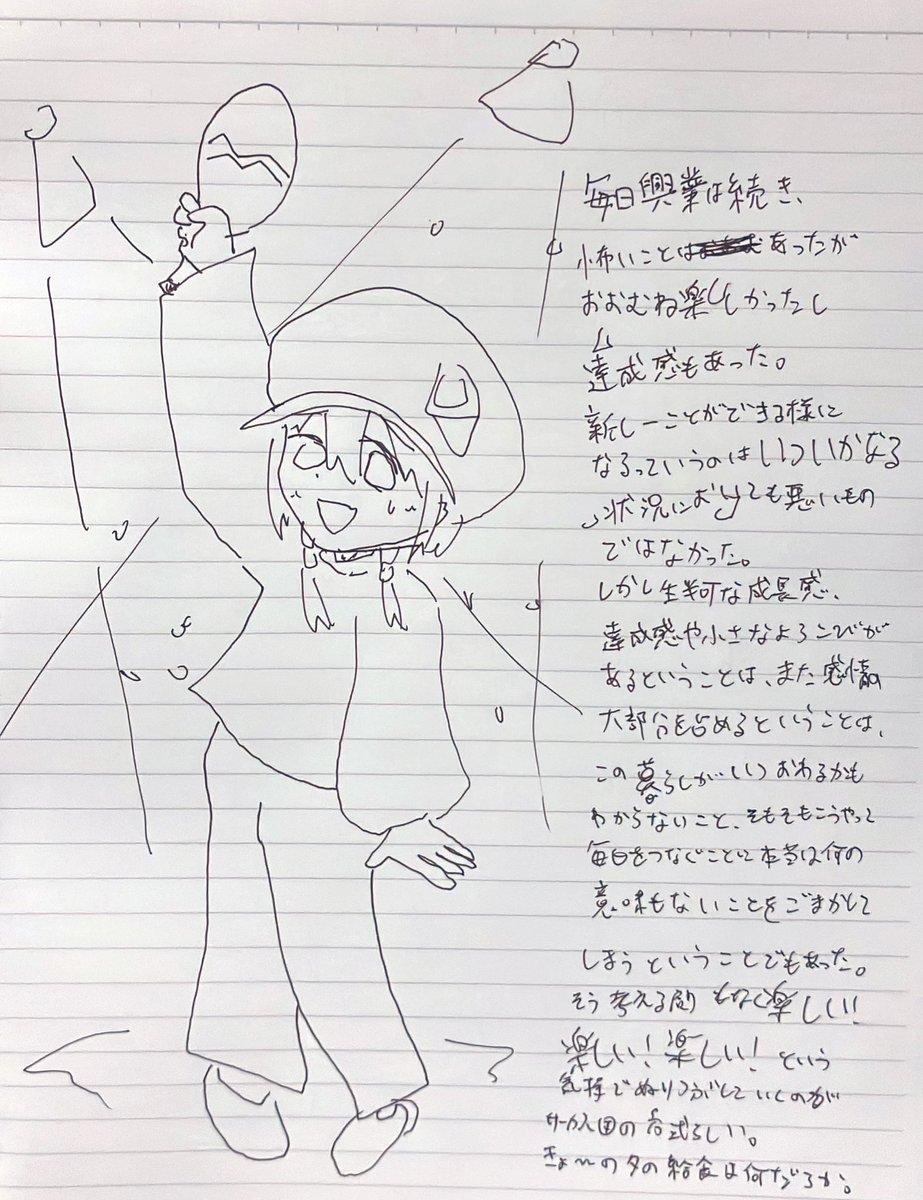 毎日興業は続き、
怖いことはあったが
おおむね楽しかったし
達成感もあった。
新しーことができる様に
なるっていうのはいついかなる
状況においても悪いもの
ではなかった。
しかし生半可な成長感、
達成感や小さなよろこびが
あるということは、また感情の
大部分を占めるということは、
この暮らしがいつおわるかも
わからないこと、そもそもこうやって
毎日をつなぐことに本当は何の
意味もないことをごまかして
しまうということでもあった。
そう考える間もなく楽しい!
楽しい!楽しい!という
気持でぬりつぶしていくのが
サーカス団の方式らしい。
きょーの夕の給食は何だろうか。